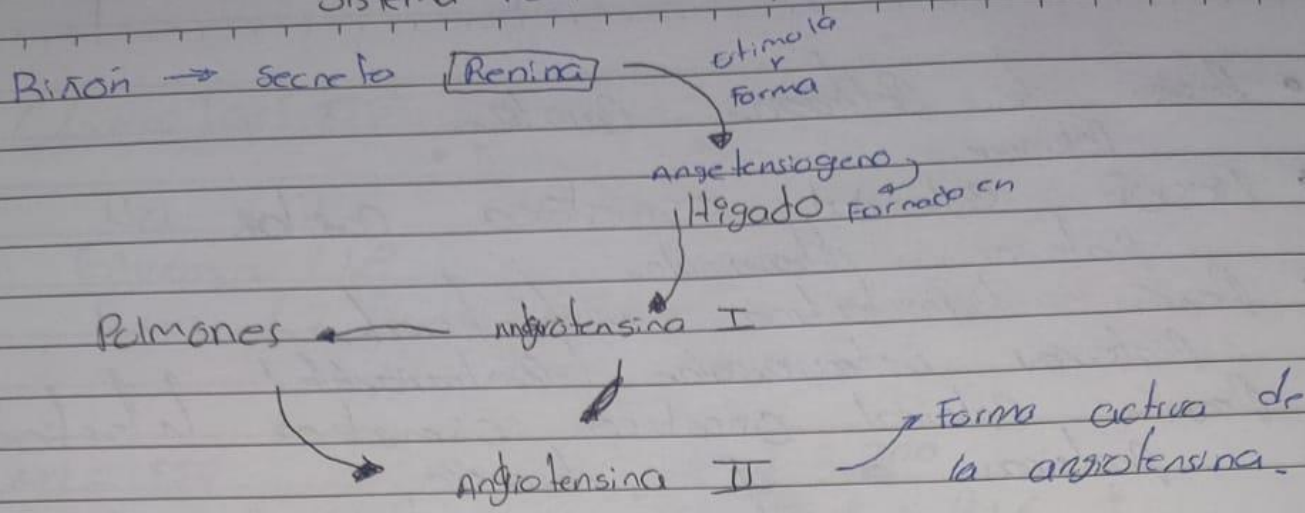 Riñón → Secreta Renina
Etimola
y
Forma
Angetensiogeno
Higado Formado en
Pulmones ← angiotensina I
Angiotensina II
Forma activa de
la angiotensina.